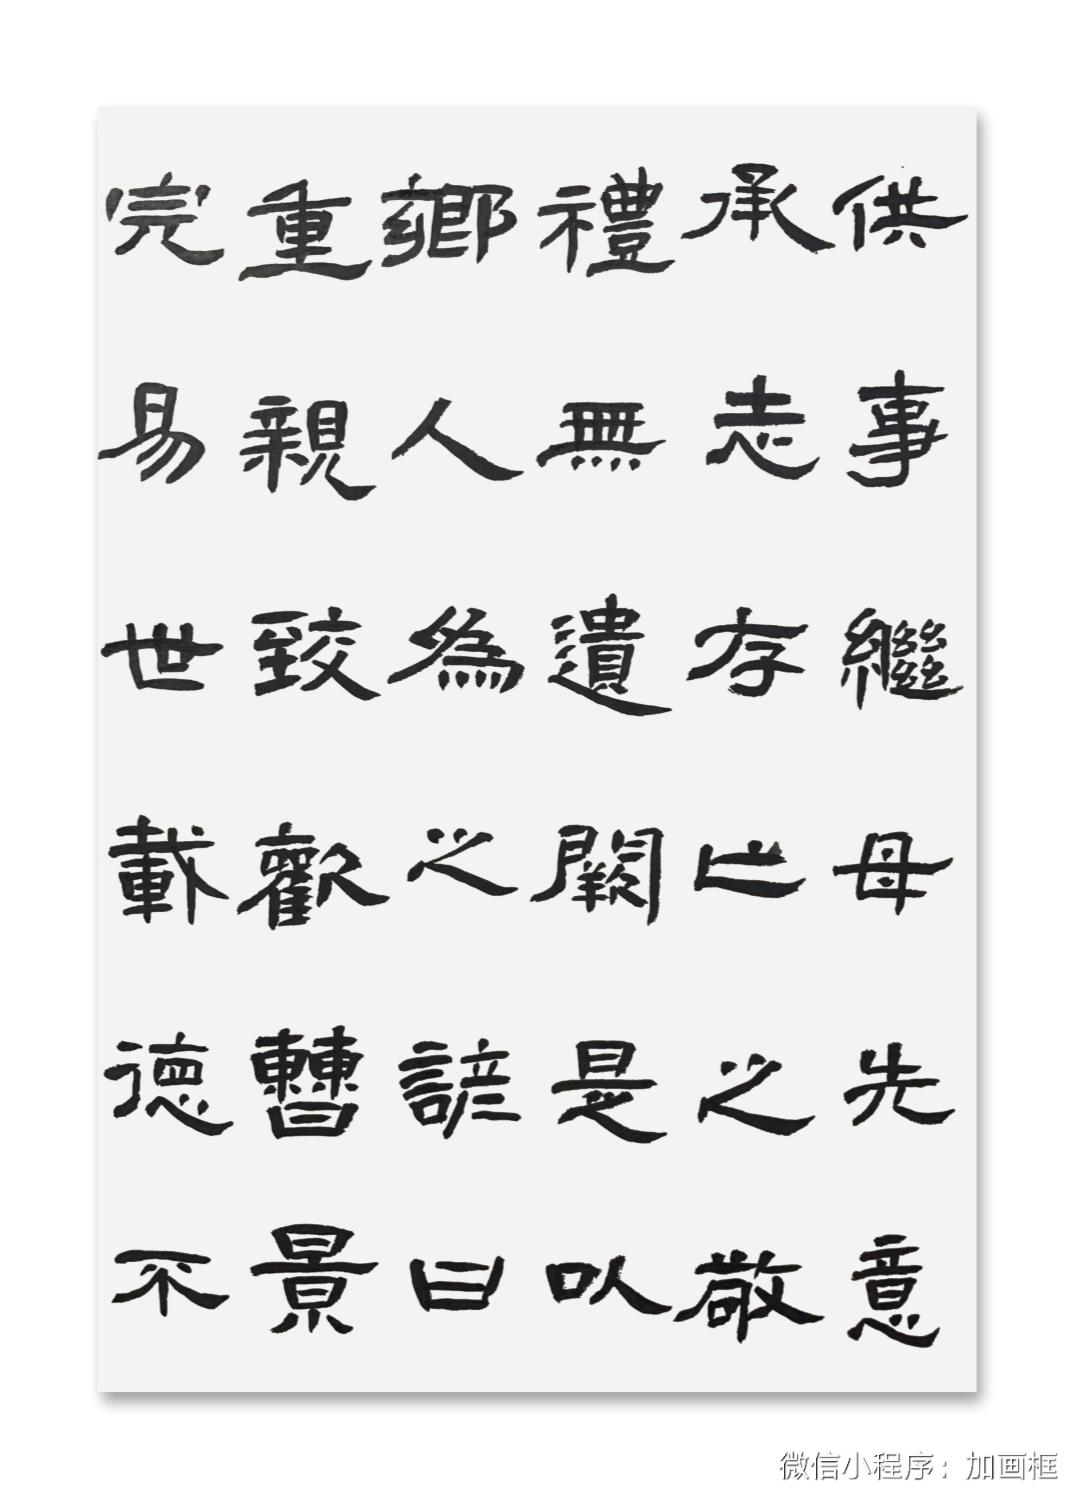 供事繼母先意
承志存亡之敬
禮無遺闕是以
鄉人為之諺曰
重親致歡曹景
完易世載德不
微信小程序：加画框